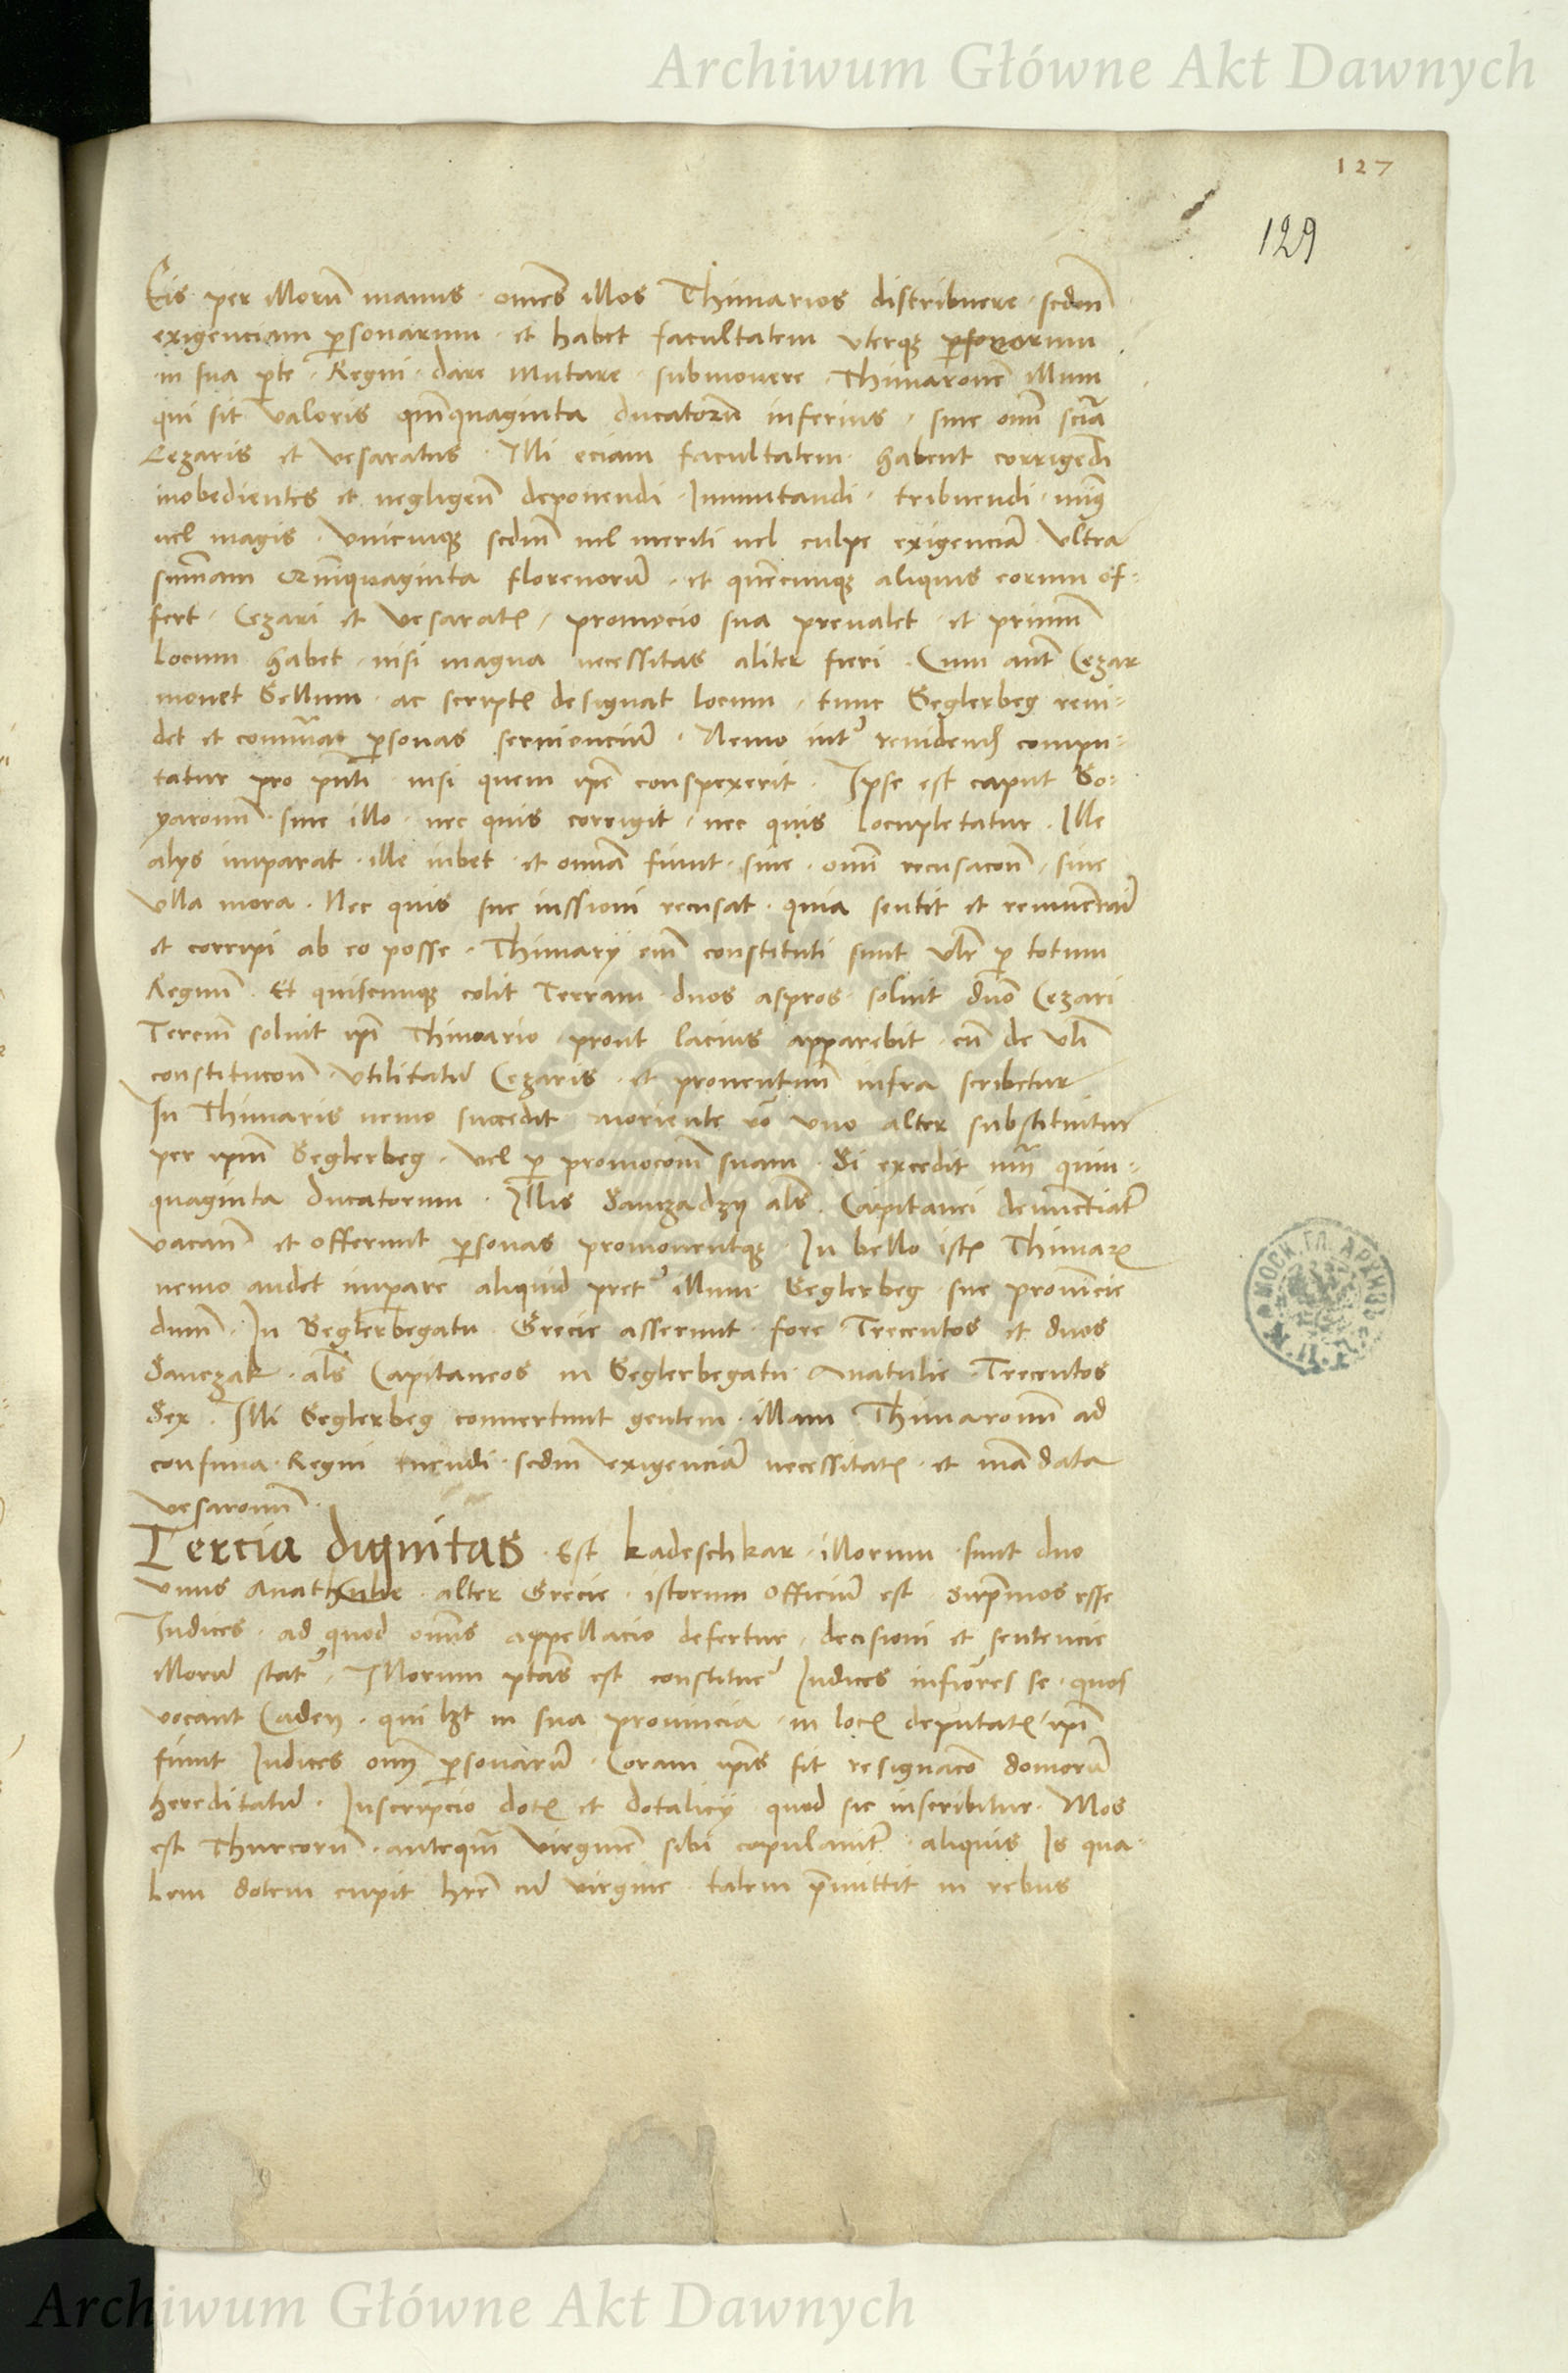 Archiwum Główne Akt Dawnych
127
129
Eis per illorū manus omēs illos Thimarios distribuere sedm̄
exigenciam personarum et habet facultatem vterqꝫ
in sua pͭte Regni dare mutare submouere Thimaronē illum
qui sit valoris quīquaginta ducatorū inferius sine om̄i scīa
Cezaris et vesaratus Illi eciam facultatem habent corrigēdi
inobedientes et negligen̄ deponendi Immutandi tribuendi minꝰ
uel magis vnicuiqꝫ sedm̄ uel meriti uel culpe exigenciā Vltra
summam Quīquaginta florenorū et quēcunqꝫ aliquis eorum of-
fert Cezari et vesaratꝫ promocio sua preualet et primū
locum habet nisi magna necessitas aliter fieri Cum aut̄ Cezar
mouet Bellum ac scriptꝫ designat locum tunc Beglerbeg reui-
det et personas seruienciū Nemo int' reuidend' compu-
tatur pro pn̄ti nisi quem ip̄e conspexerit Ipse est caput Bo-
yaronū sine illo nec quis corrigit nec quis locupletatur Ille
alys imparat ille iubet et omīa fiunt sine om̄i recusacōn sine
vlla mora Nec quis sue iussioni recusat quia sentit et
et corripi ab eo posse Thimarÿ em̄ constituti sunt vlr̄ p totum
Regnū Et quicunqꝫ colit Terram duos aspros soluit duō Cezari
Terciū soluit ip̄i Thimario prout lacius apparebit cū de vlī
constitucōn vtilitatū Cezaris et prouentuum infra scribetur
In Thimaris nemo succedit moriente vō vno alter substituitur
per ip̄m Beglerbeg vel p promocōem suam Si excedit quin-
quaginta ducatorum Illis Sanczadzy als Capitanei denunctiat'
vacan̄ et offerunt personas promouentqꝫ In bello istꝫ Thimarꝫ
nemo audet imperare aliquid pret' illum Beglerbeg sue prouīcie
dum̄ In Beglerbegatu Grecie asserunt fore Trecentos et duos
Sanczak als Capitaneos in Beglerbegatu Anatulie Trecentos
Sex Illi Beglerbeg conuertunt gentem illam Thimaronū ad
confinia Regni sedm̄ exigenciā necessitatꝫ et mādata
vesaronū
Tercia dignitas Est kadeschkar illorum sunt duo
vnus alter Grecie istorum officiū est Sup̄mos esse
Iudices ad quod om̄is appellacio defertur decisioni et sentencie
illorū stat' Illorum ptās est constituer' Iudices inf'iores se quos
vocant Cadey qui lꝫt in sua prouincia in locꝫ deputatꝫ ip̄i
fiunt Iudices om̄iū personarū Coram ip̄is fit resignacō domorū
hereditatū Inscripcio dotꝫ et dotalicÿ quod sic inscribitur Mos
est Thurcorū anteqꝫ virginē sibi copulauit' aliquis Is qua-
lem dotem cupit hrē cū virgine talem p̄mittit in rebus
Archiwum Główne Akt Dawnych